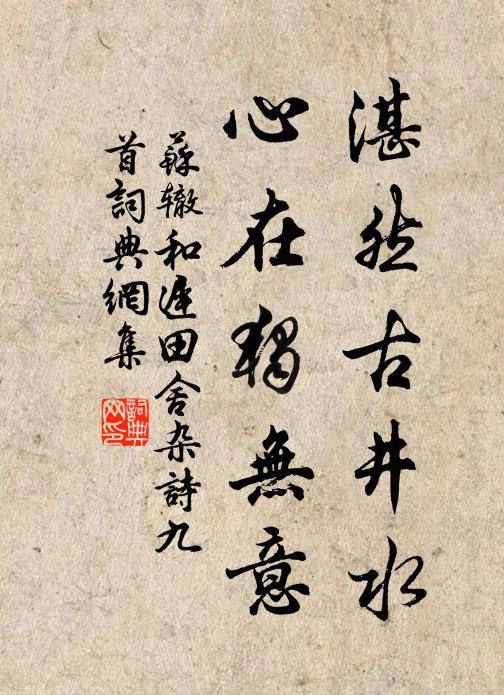 湛然古井水
心在獨無意
蘇辙和遲田舍杂詩九
首詞典網集
詞典
网印